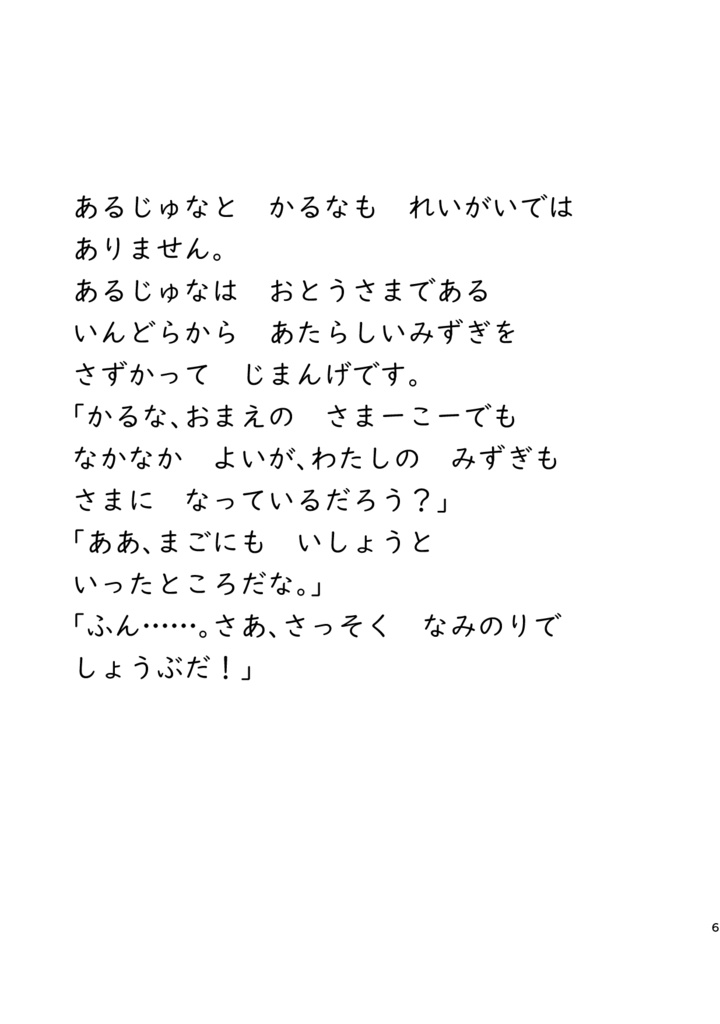 あるじゅなと　かるなも　れいがいでは
ありません。
あるじゅなは　おとうさまである
いんどらから　あたらしいみずぎを
さずかって　じまんげです。
「かるな、おまえの　さまーこーでも
なかなか　よいが、わたしの　みずぎも
さまに　なっているだろう？」
「ああ、まごにも　いしょうと
いったところだな。」
「ふん……。さあ、さっそく　なみのりで
しょうぶだ！」
6